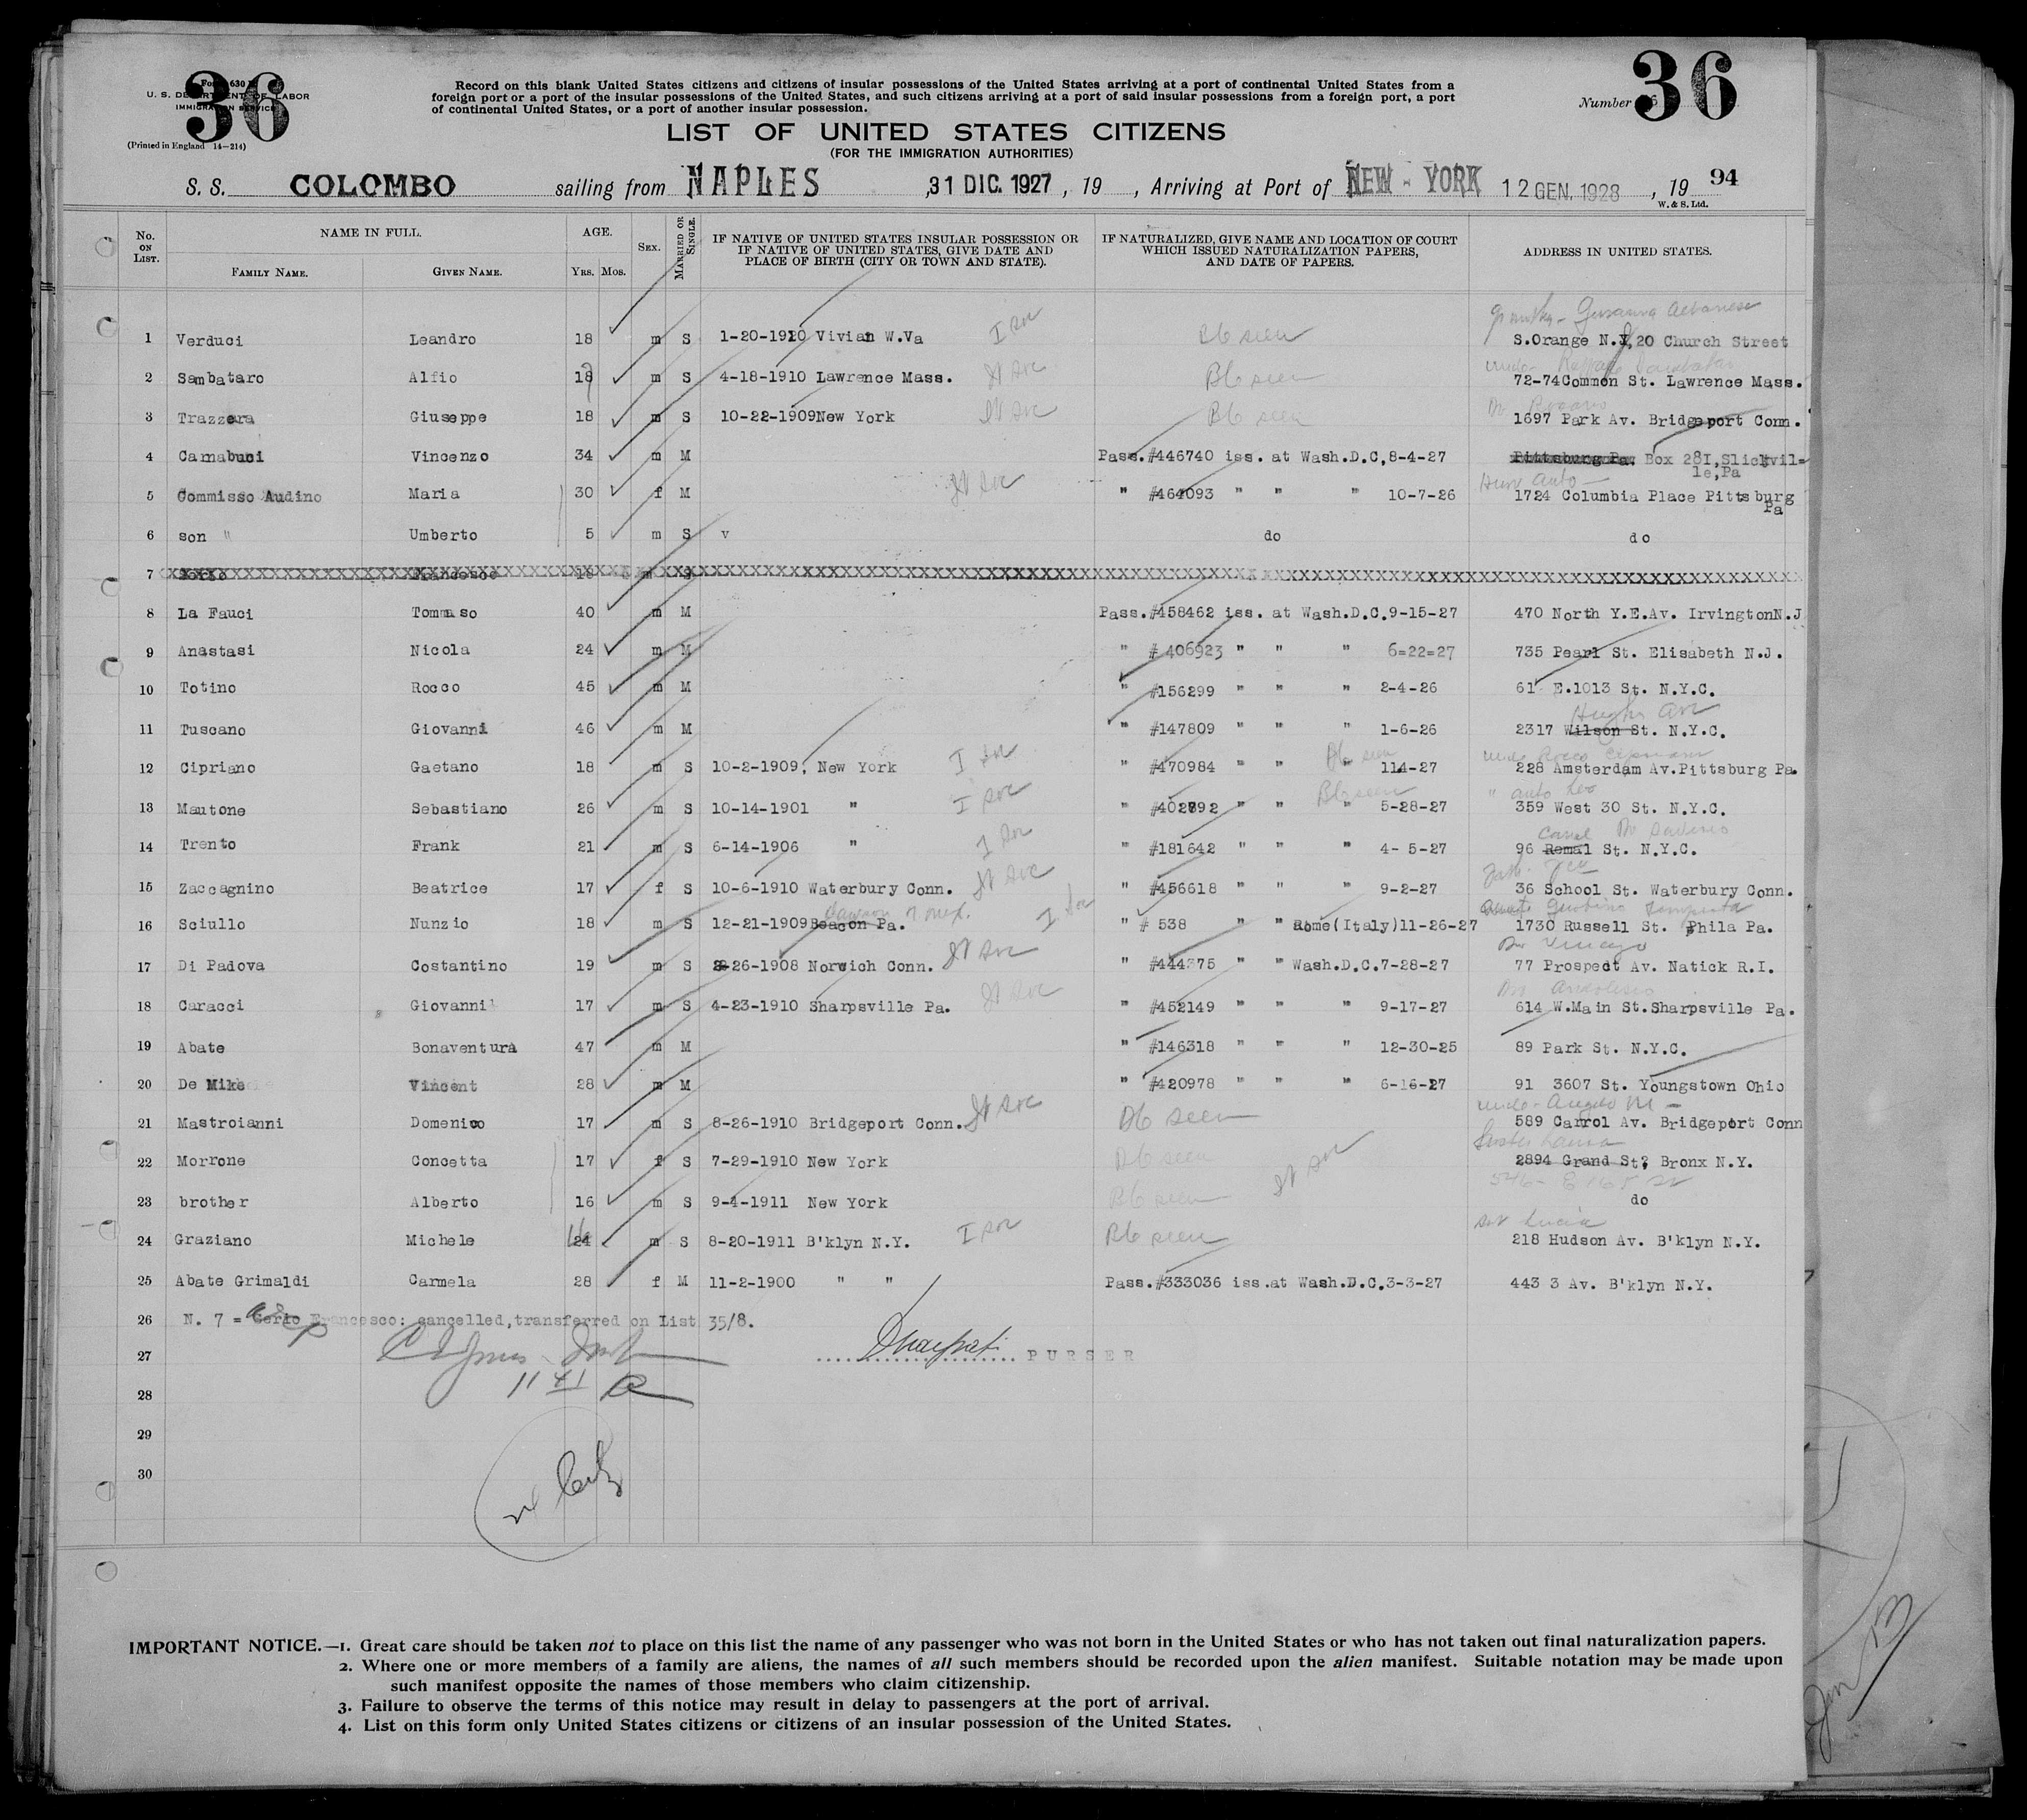 36
36
Form 630
U. S. DEPARTMENT OF LABOR
IMMIGRATION SERVICE
(Printed in England 14—214)
Record on this blank United States citizens and citizens of insular possessions of the United States arriving at a port of continental United States from a
foreign port or a port of the insular possessions of the United States, and such citizens arriving at a port of said insular possessions from a foreign port, a port
of continental United States, or a port of another insular possession.
Number
LIST OF UNITED STATES CITIZENS
(FOR THE IMMIGRATION AUTHORITIES)
S. S. COLOMBO sailing from NAPLES 31 DIC. 1927, 19 , Arriving at Port of NEW-YORK 12 GEN. 1928, 19 94
W. & S. Ltd.
No. ON LIST. NAME IN FULL. FAMILY NAME. GIVEN NAME. AGE. YRS. MOS. SEX. MARRIED OR SINGLE. IF NATIVE OF UNITED STATES INSULAR POSSESSION OR IF NATIVE OF UNITED STATES, GIVE DATE AND PLACE OF BIRTH (CITY OR TOWN AND STATE). IF NATURALIZED, GIVE NAME AND LOCATION OF COURT WHICH ISSUED NATURALIZATION PAPERS, AND DATE OF PAPERS. ADDRESS IN UNITED STATES.
1 Verduci Leandro 18 m S 1-20-1910 Vivian W.Va Bb seen S.Orange N.J, 20 Church Street
2 Sambataro Alfio 18 m S 4-18-1910 Lawrence Mass. Bb seen 72-74Common St. Lawrence Mass.
3 Trazzera Giuseppe 18 m S 10-22-1909New York Bb seen 1697 Park Av. Bridgeport Conn.
4 Carnabuci Vincenzo 34 m M Pass.#446740 iss. at Wash.D.C,8-4-27 Pittsburg Pa. Box 281,Slickvil=
le,Pa
5 Commisso Audino Maria 30 f M " #464093 " " " 10-7-26 1724 Columbia Place Pittsburg
Pa
6 son " Umberto 5 m S v do do
7 Francesco
8 La Fauci Tommaso 40 m M Pass.#458462 iss. at Wash.D.C,9-15-27 470 North Y.E.Av. IrvingtonN.J
9 Anastasi Nicola 24 m M " #406923 " " " 6=22=27 735 Pearl St. Elisabeth N.J.
10 Totino Rocco 45 m M " #156299 " " " 2-4-26 61 E.1013 St. N.Y.C.
Hughs Ave
11 Tuscano Giovanni 46 m M " #147809 " " " 1-6-26 2317 Wilson St. N.Y.C.
12 Cipriano Gaetano 18 m S 10-2-1909, New York " #470984 " " " 114-27 228 Amsterdam Av.Pittsburg Pa.
13 Mautone Sebastiano 26 m S 10-14-1901 " " #402792 " " " 5-28-27 359 West 30 St. N.Y.C.
14 Trento Frank 21 m S 6-14-1906 " " #181642 " " " 4- 5-27 96 Remal St. N.Y.C.
15 Zaccagnino Beatrice 17 f S 10-6-1910 Waterbury Conn. " #456618 " " " 9-2-27 36 School St. Waterbury Conn.
16 Sciullo Nunzio 18 m S 12-21-1909Beacon Pa. " # 538 " " Rome(Italy)11-26-27 1730 Russell St. Phila Pa.
17 Di Padova Costantino 19 m S 26-1908 Norwich Conn. " #444375 " " Wash.D.C.7-28-27 77 Prospect Av. Natick R.I.
18 Caracci Giovanni 17 m S 4-23-1910 Sharpsville Pa. " #452149 " " " 9-17-27 614 W.Main St.Sharpsville Pa.
19 Abate Bonaventura 47 m M " #146318 " " " 12-30-25 89 Park St. N.Y.C.
20 De Mike Vincent 28 m M " #420978 " " " 6-16-27 91 3607 St. Youngstown Ohio
21 Mastroianni Domenico 17 m S 8-26-1910 Bridgeport Conn. Bb seen 589 Carrol Av. Bridgeport Conn
22 Morrone Concetta 17 f S 7-29-1910 New York Bb seen 2894 Grand St. Bronx N.Y.
23 brother Alberto 16 m S 9-4-1911 New York Bb seen do
24 Graziano Michele 16 24 m S 8-20-1911 B'klyn N.Y. Bb seen 218 Hudson Av. B'klyn N.Y.
25 Abate Grimaldi Carmela 28 f M 11-2-1900 " " Pass.#333036 iss.at Wash.D.C.3-3-27 443 3 Av. B'klyn N.Y.
26 N. 7 = Francesco: cancelled,transferred on List 35/8.
27 PURSER
28
29
30
IMPORTANT NOTICE.—1. Great care should be taken not to place on this list the name of any passenger who was not born in the United States or who has not taken out final naturalization papers.
2. Where one or more members of a family are aliens, the names of all such members should be recorded upon the alien manifest. Suitable notation may be made upon
such manifest opposite the names of those members who claim citizenship.
3. Failure to observe the terms of this notice may result in delay to passengers at the port of arrival.
4. List on this form only United States citizens or citizens of an insular possession of the United States.